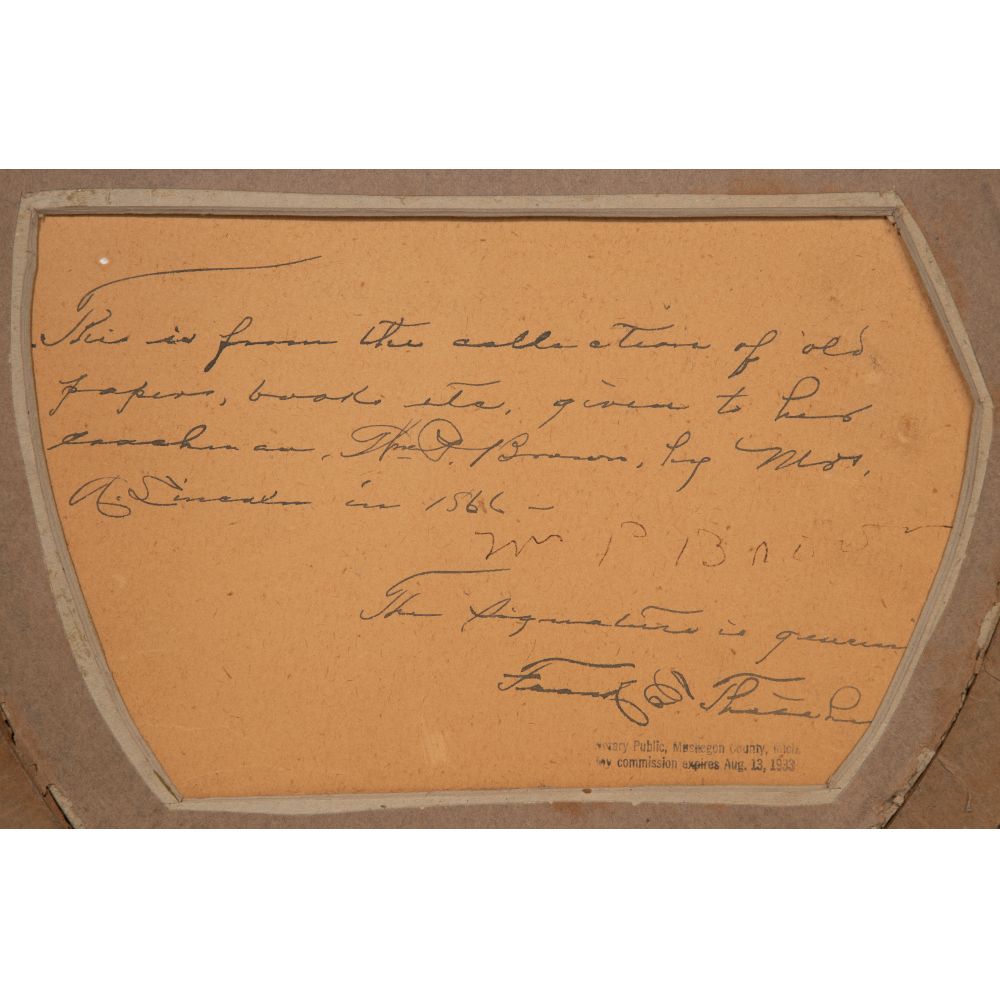 This is from the collection of old
papers, books etc, given to his
coachman, Wm P. Brown, by Mrs.
A. Lincoln in 1866 -
Wm P Brown
The signature is genuin
Frank
Notary Public, Muskegon County, Mich.
My commission expires Aug. 13, 1933